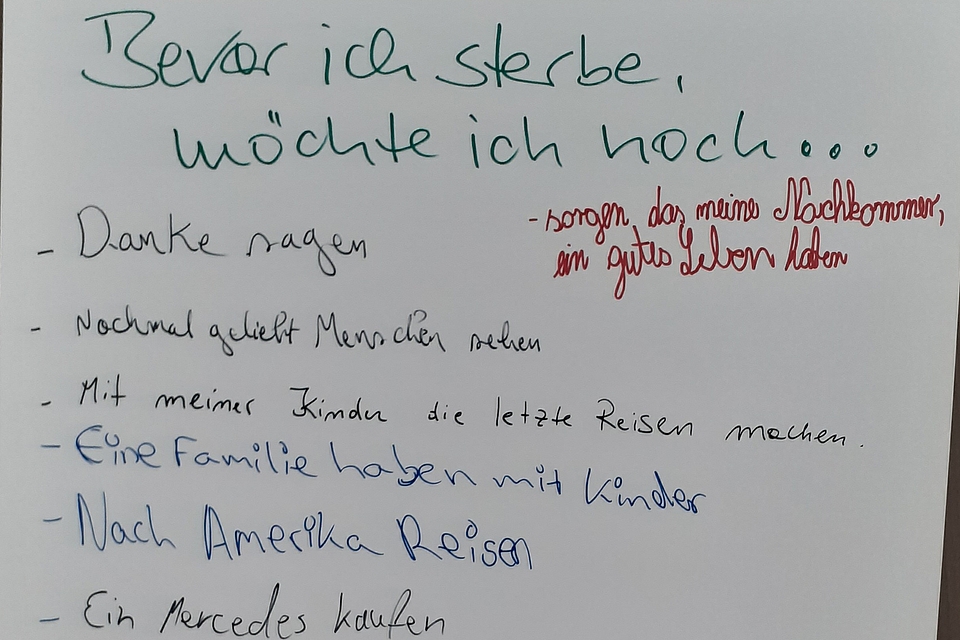 Bevor ich sterbe,
möchte ich noch...
- Danke sagen
- sorgen, das meine Nachkommer,
ein gutes Leben haben
- Nochmal geliebt Menschen sehen
- Mit meiner Kinder die letzte Reisen machen.
- Eine Familie haben mit Kinder
- Nach Amerika Reisen
- Ein Mercedes kaufen